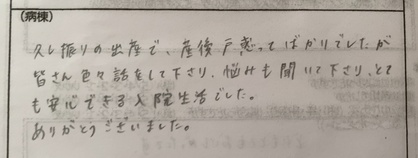 (病棟)
久し振りの出産で、産後戸惑ってばかりでしたが
皆さん色々話をして下さり、悩みも聞いて下さり、とて
も安心できる入院生活でした。
ありがとうございました。